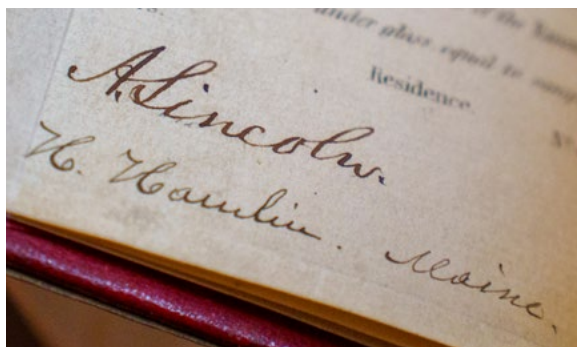 of the
under glass equal to
Residence.
A. Lincoln.
H. Hamlin. Maine.